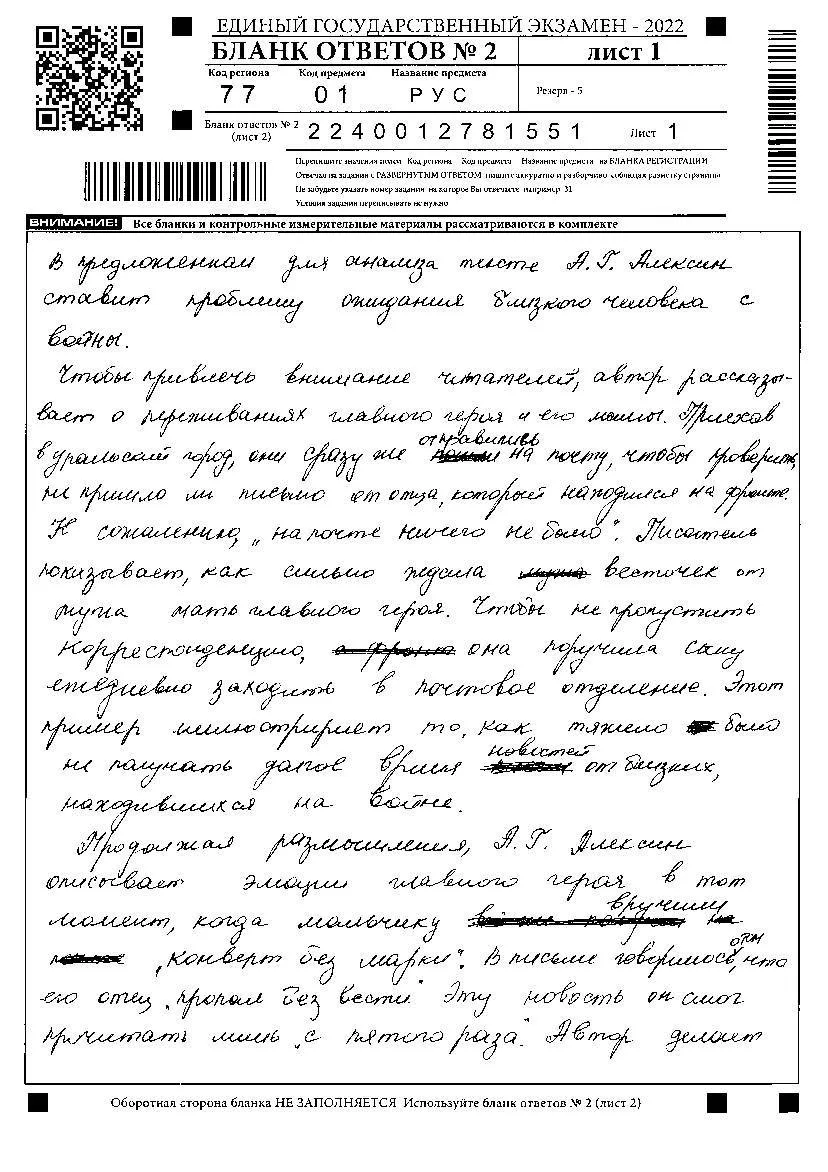 ЕДИНЫЙ ГОСУДАРСТВЕННЫЙ ЭКЗАМЕН - 2022
БЛАНК ОТВЕТОВ № 2 лист 1
Код региона Код предмета Название предмета
77 01 РУС Резерв - 5
Бланк ответов № 2 (лист 2) 2240012781551 Лист 1
Перепишите значения полей Код региона Код предмета Название предмета из БЛАНКА РЕГИСТРАЦИИ
Отвечая на задания с РАЗВЕРНУТЫМ ОТВЕТОМ пишите аккуратно и разборчиво соблюдая разметку страницы
Не забудьте указать номер задания на которое Вы отвечаете например 31
Условия задания переписывать не нужно
ВНИМАНИЕ! Все бланки и контрольные измерительные материалы рассматриваются в комплекте
В предложенном для анализа тексте А.Г. Алексин
ставит проблему ожидания близкого человека с
войны.
Чтобы привлечь внимание читателей, автор рассказы-
вает о переживаниях главного героя и его мамы. Приехав
в уральский город, они сразу же отправились на почту, чтобы проверить,
не пришло ли письмо от отца, который находился на фронте.
К сожалению, "на почте ничего не было". Писатель
показывает, как сильно ждала весточек от
мужа мать главного героя. Чтобы не пропустить
корреспонденцию, она поручила сыну
ежедневно заходить в почтовое отделение. Этот
пример иллюстрирует то, как тяжело было
не получать долгое время новостей от близких,
находившихся на войне.
Продолжая размышления, А.Г. Алексин
описывает эмоции главного героя в тот
момент, когда мальчику вручили
"конверт без марки". В письме говорилось, что
его отец "пропал без вести" Эту новость он смог
прочитать лишь "с пятого раза". Автор делает
Оборотная сторона бланка НЕ ЗАПОЛНЯЕТСЯ Используйте бланк ответов № 2 (лист 2)